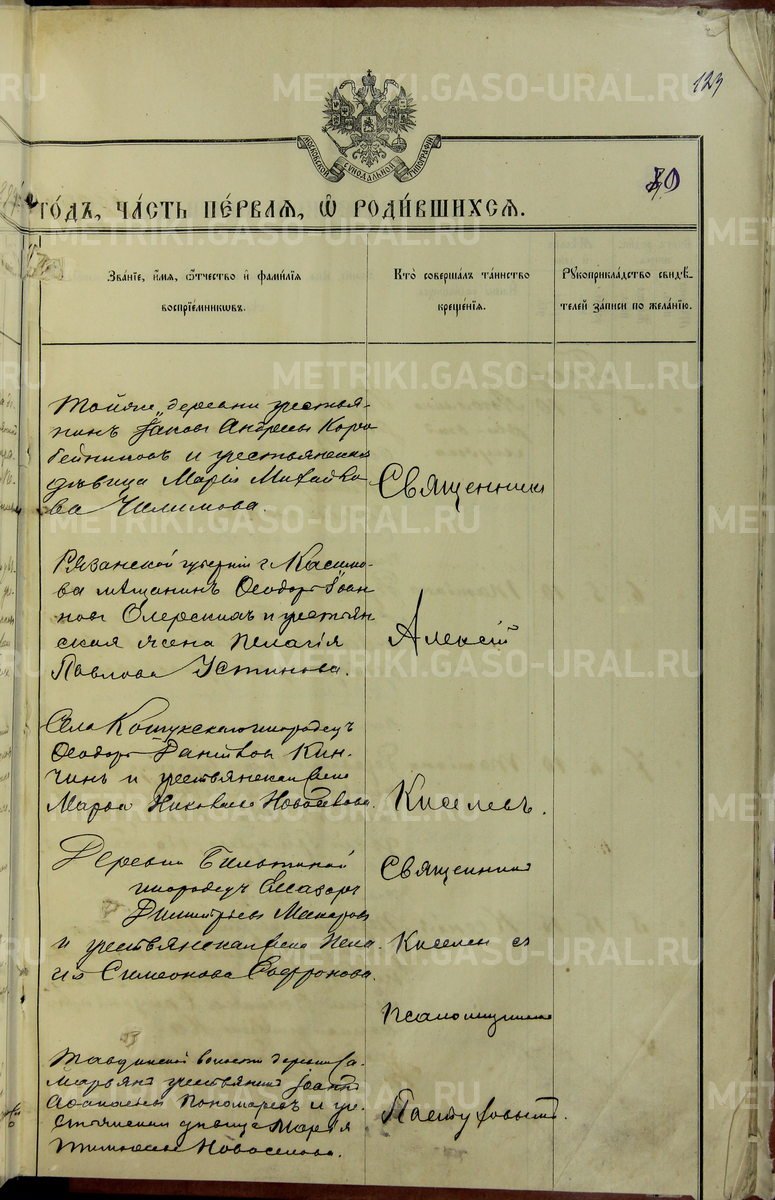 123
МОСКОВСКОЙ СѴНОДАЛЬНОЙ ТИПОГРАФІИ
80
ГО́ДЪ, ЧА́СТЬ ПЕ́РВАЯ, Ѿ РОДИ́ВШИХСЯ.
Зва́нїе, и҆́мя, ѻ҆́тчество и҆ фами́лїя
воспрїе́мникѡвъ.
Кто̀ соверша́лъ та́инство
креще́нїя.
Рꙋкоприкла́дство свидѣ́-
телей за́писи по жела́нїю.
Тойже деревни крестья-
нинъ Іаковъ Андреевъ Коро
бейниковъ и крестьянская
дѣвица Марія Михайло
ва Чилимова.
Священникъ
Рязанской губерніи г. Касимо
ва мѣщанинъ Ѳеодоръ Іоан
новъ и крестьян
ская жена Пелагія
Павлова Устинова.
Алексій
Села Кошукскаго инородецъ
Ѳеодоръ Кин-
чинъ и крестьянская жена
Марѳа Николаева Новоселова.
Киселевъ.
Деревни
инородецъ Елеазаръ
Димитріевъ Макаровъ
и крестьянская жена Пела
гія Симеонова Софронова.
Священникъ
Киселев съ
псаломщикомъ
Тавдинской волости деревни Са-
крестьянинъ Іоаннъ
Аѳанасьевъ Пономаревъ и кре-
стьянская дѣвица Марія
Новоселова.
Пастуховымъ.
METRIKI.GASO-URAL.RU